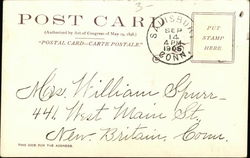 3-
POST CARD
(Authorized by Act of Congress of May 19, 1898.)
"POSTAL CARD—CARTE POSTALE"
SALISBURY
SEP
14
4 PM
1905
CONN.
PUT
STAMP
HERE
Mrs. William Spurr-
441 West Main St.
New Britain, Conn.
THIS SIDE FOR THE ADDRESS.